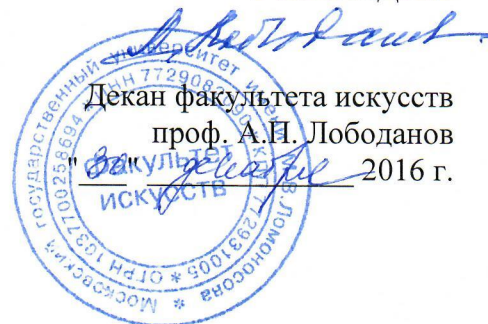 Декан факультета искусств
проф. А.П. Лободанов
"30" декабря 2016 г.
Московский государственный университет имени М.В.Ломоносова *
ОГРН 1037700258694 * ИНН 7729082090
факультет
искусств